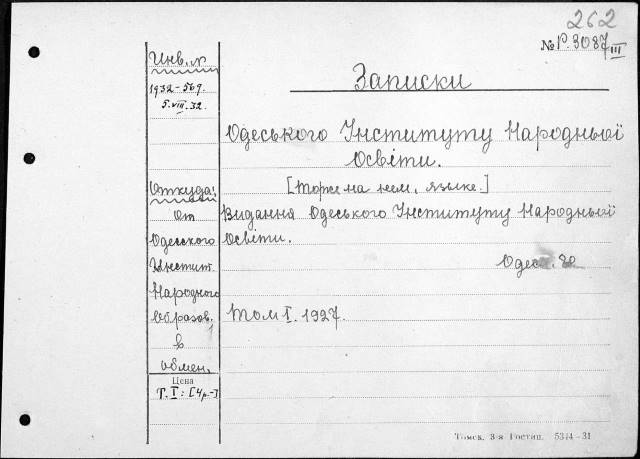 262
№ Р.3087 III
Инв. №
1932-567.
5.VIII.32.
Записки
Одеського Інституту Народньої
Освіти.
[Тоже на нем. языке.]
Видання Одеського Інституту Народньої
Освіти.
Одес . 8°
Том I. 1927.
Откуда:
От
Одесского
Инстит.
Народного
Образов.
в
обмен.
Цена
Т. I: [4р.-]
Томск. 3-я Гостип. 5344-31